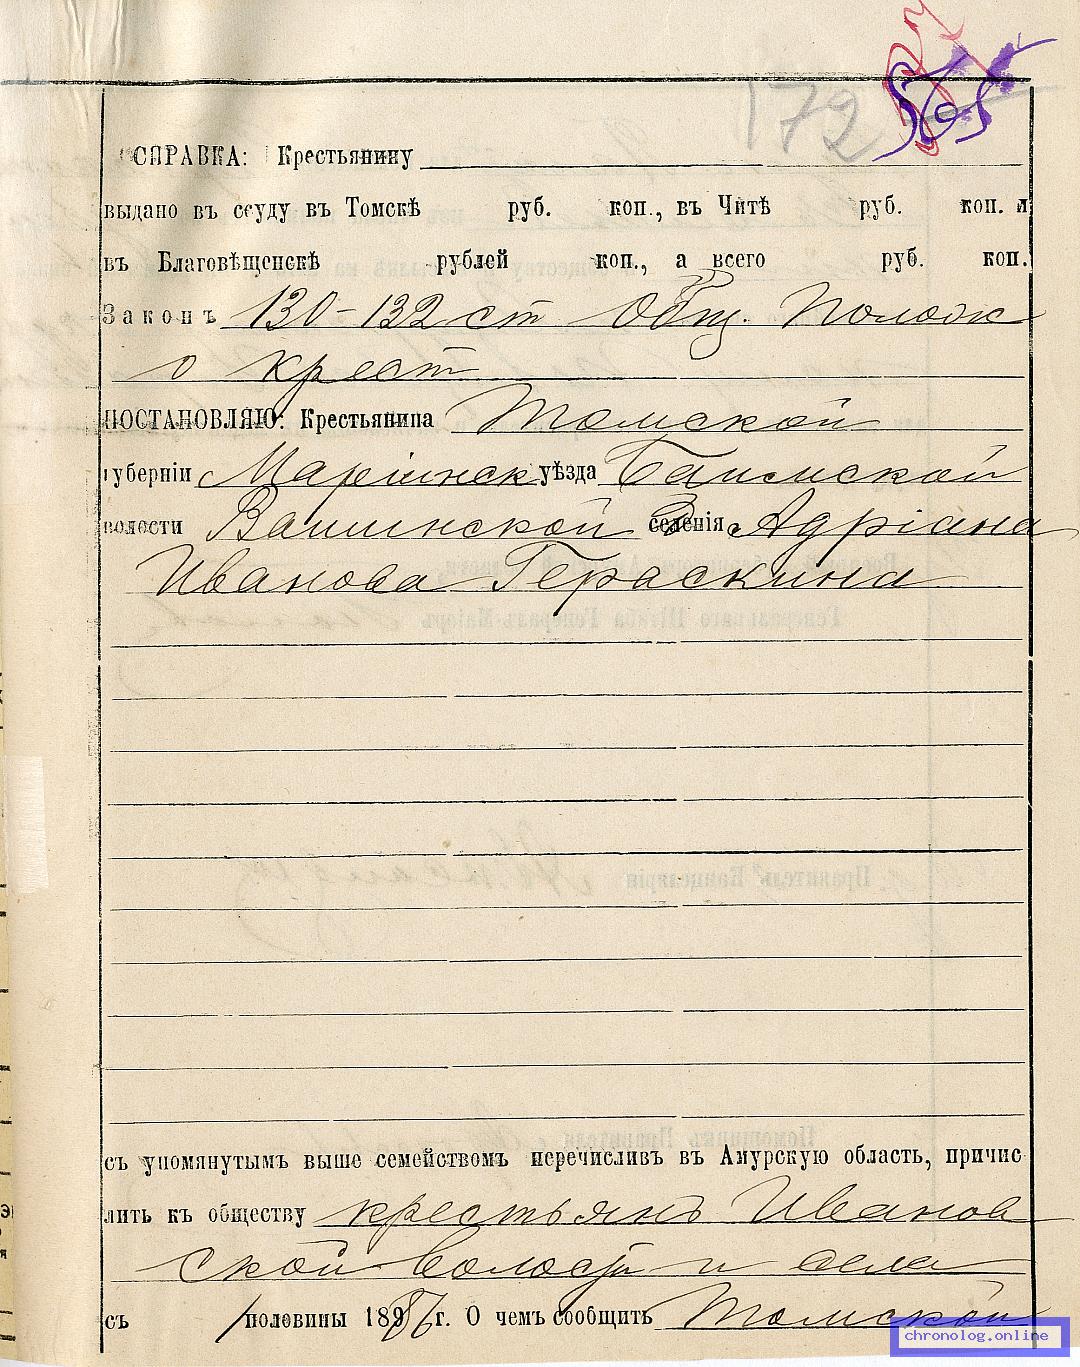 172
СПРАВКА: Крестьянину
выдано въ ссуду въ Томскѣ руб. коп., въ Читѣ руб. коп. и
въ Благовѣщенскѣ рублей коп., а всего руб. коп.
Законъ 130–132 ст Общ. Полож
о крест
ПОСТАНОВЛЯЮ: Крестьянина Томской
губерніи Маріинск уѣзда Баимской
волости селенія Адріана
Иванова Гераскина
съ упомянутымъ выше семействомъ перечисливъ въ Амурскую область, причис
лить къ обществу крестьянъ Иванов
ской волости и села
съ 1 половины 189 г. О чемъ сообщить Томской
chronolog.online